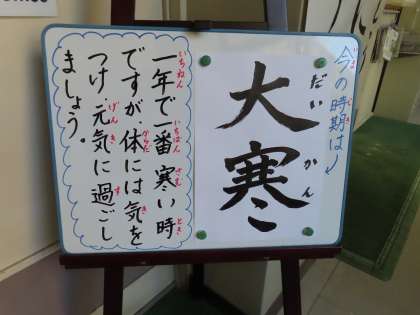 今の時期は
大寒
だいかん
一年で一番寒い時
ですが、体には気を
つけ元気に過ごし
ましょう。